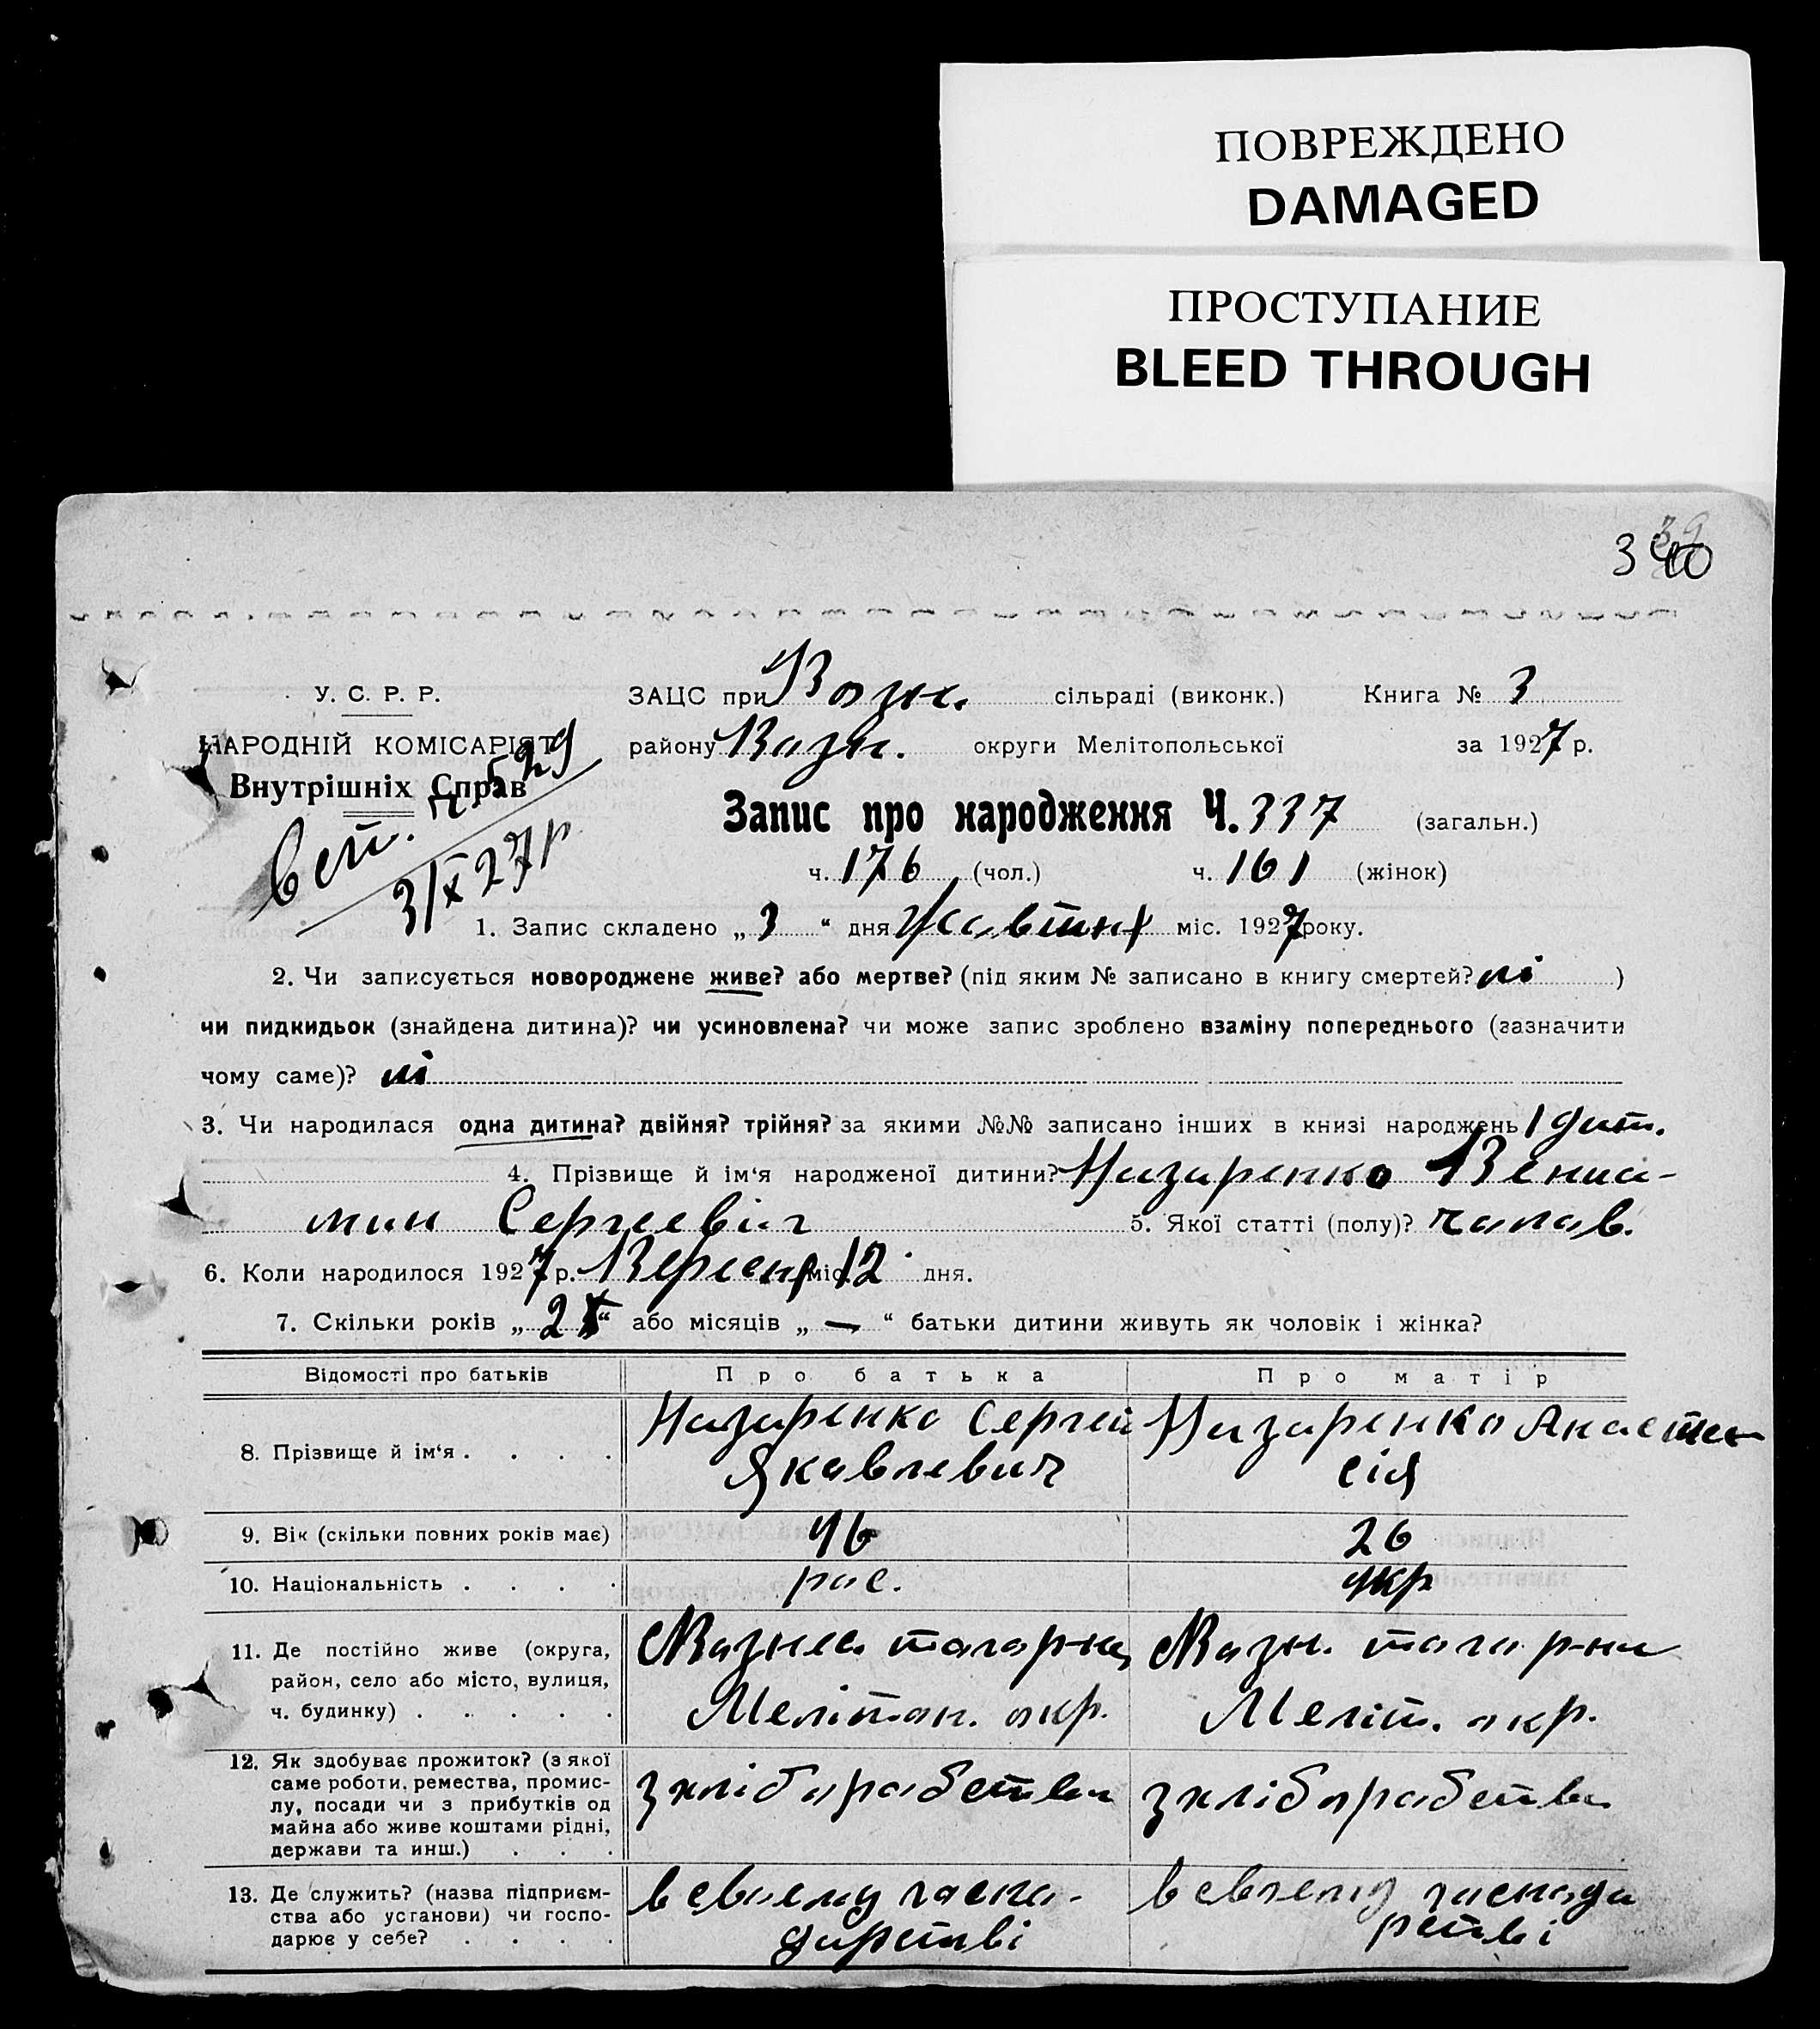 ПОВРЕЖДЕНО
DAMAGED
ПРОСТУПАНИЕ
BLEED THROUGH
340
39
У. С. Р. Р.
НАРОДНІЙ КОМІСАРІЯТ
Внутрішніх Справ
529
3/X 27 р
ЗАЦС при Возн. сільраді (виконк.) Книга № 3
району Возн. округи Мелітопольської за 1927 р.
Запис про народження Ч. 337 (загальн.)
ч. 176 (чол.) ч. 161 (жінок)
1. Запис складено „ 3 “ дня Жовтня міс. 1927 року.
2. Чи записується новороджене живе? або мертве? (під яким № записано в книгу смертей? ні )
чи пидкидьок (знайдена дитина)? чи усиновлена? чи може запис зроблено взаміну попереднього (зазначити
чому саме)? ні
3. Чи народилася одна дитина? двійня? трійня? за якими №№ записано інших в книзі народжень 1 дит.
4. Прізвище й ім‘я народженої дитини? Назаренко Вениа-
мин Сергеевіч 5. Якої статті (полу)? чолов.
6. Коли народилося 1927 р. Вересня міс. 12 дня.
7. Скільки років „ 2 “ або місяців „ — “ батьки дитини живуть як чоловік і жінка?
Відомості про батьків Про батька Про матір
8. Прізвище й ім‘я . . . . Назаренко Сергей Яковлевич Назаренко Анаста сія
9. Вік (скільки повних років має) 46 26
10. Національність . . . . рос. укр
11. Де постійно живе (округа, район, село або місто, вулиця, ч. будинку) . . . . . Вознес. того р-на Мелітоп. окр. Возн. того р-на Меліт. окр.
12. Як здобуває прожиток? (з якої саме роботи, ремества, промис- лу, посади чи з прибутків од майна або живе коштами рідні, держави та инш.) . . . з хліборобства з хліборобства
13. Де служить? (назва підприєм- ства або установи) чи госпо- дарює у себе? . . . . в своєму госпо- дарстві в своєму господа рстві